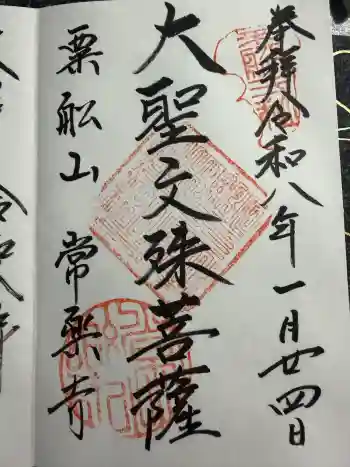 奉拜 令和八年一月廿四日
大聖文殊菩薩
粟船山 常楽寺